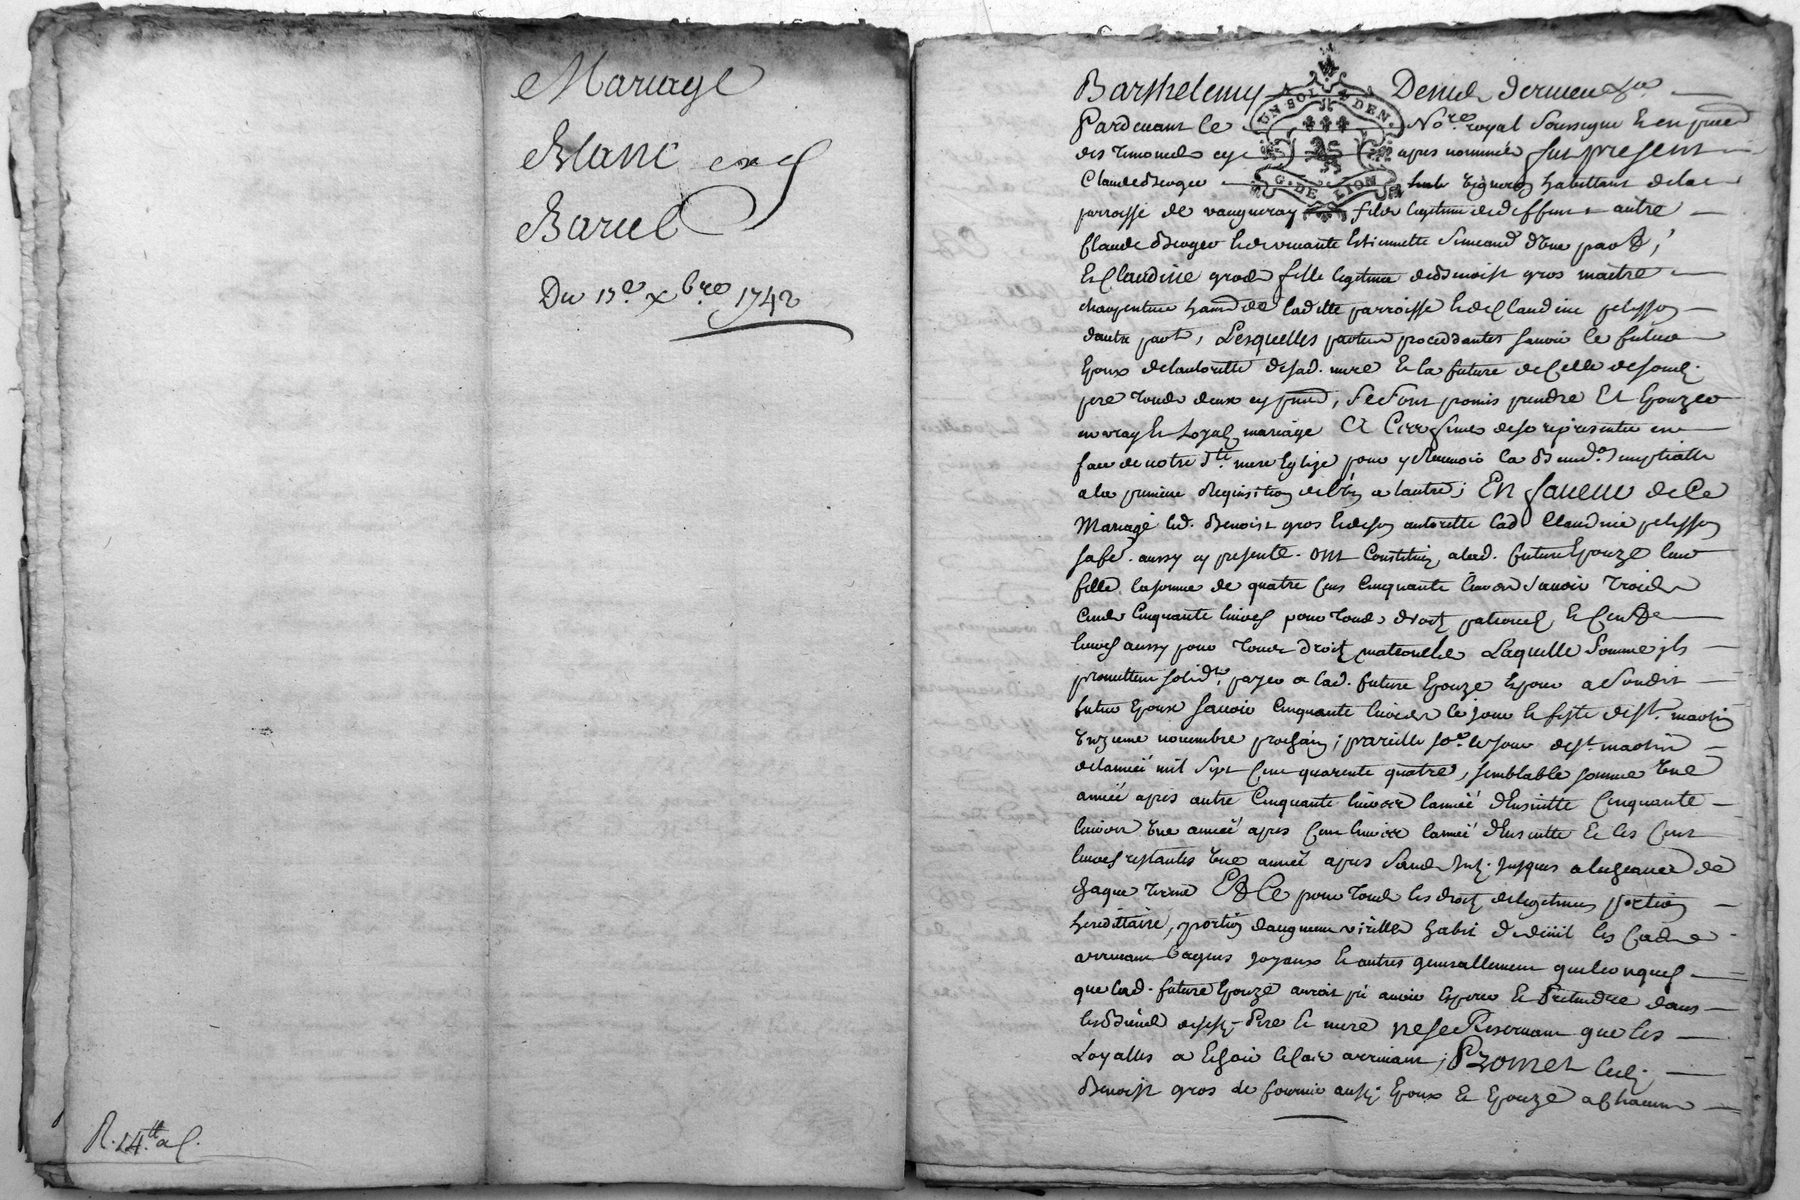 Mariage
Blanc et
Bariel
Du 13e xbre 1742
R. 14tt a
Barthelemy Deniel dernieu
UN SOL DEN.
G. DE LION
Pardevant le Nore royal Soussigne et en pnce
des temoins cy apres nommés fut present
Claude Berger vigneron habittant de la
parroisse de vaugneray fils legitime de deffunt autre
Claude Berger et de vivante Estiennette Simeand d'Une part,
Et Claudine gros fille legitime de Benoist gros maitre
charpentier habt de lad. ditte parroisse et de Claudine pelisson
dautre part, Lesquelles parties procedantes savoir le futur
Epoux de lautoritté de sad. mere Et la future de Celle de sond.
pere tous deux cy pnts, Se Sont promis prendre Et Epouzer
en vray et Loyal mariage Et a Ces fins de se representer en
face de notre Ste mere Eglize pour y recevoir la Bened.on nuptialle
a la premiere Requisition de l'Un a lautre; En faveur de Ce
Mariage led. Benoist gros et de son autoritté lad Claudine pelisson
sa fe. aussy cy presente. ont Constitué a lad. future Epouze leur
fille la somme de quatre Cens Cinquante livres Savoir Trois
Cens Cinquante livres pour tous droits paternels et Cent
livres aussy pour tous droits maternels Laquelle Somme ils
promettent solidt. payer a lad. future Epouze Epoux a Sondit
futur Epoux savoir Cinquante livres le jour et feste de St. martin
Unzieme novembre prochain; pareille so.e le jour de St. martin
de lannéé mil Sept Cent quarente quatre, semblable somme Une
annéé apres autre Cinquante livres lannéé d'Ensuitte Cinquante
livres Une annéé apres Cent livres lannéé d'Ensuitte Et les Cent
livres restantes Une annéé apres Sans Int. jusques a lecheance de
chaque terme Et Ce pour tous les droits de legitimes portion
hereditaire, portion daugment virille habit de deüil les Cas
arrivant Bagues joyaux et autres generallement quelconques
que lad. future Epouze auroit pû avoir Esperer et Pretendre dans
les Biens de sesd. Pere et mere ne se Reservant que les
Loyalles a Echoir le Cas arrivant; Promet led.
Benoist gros de fournir ausd. Epoux et Epouze a Chacun